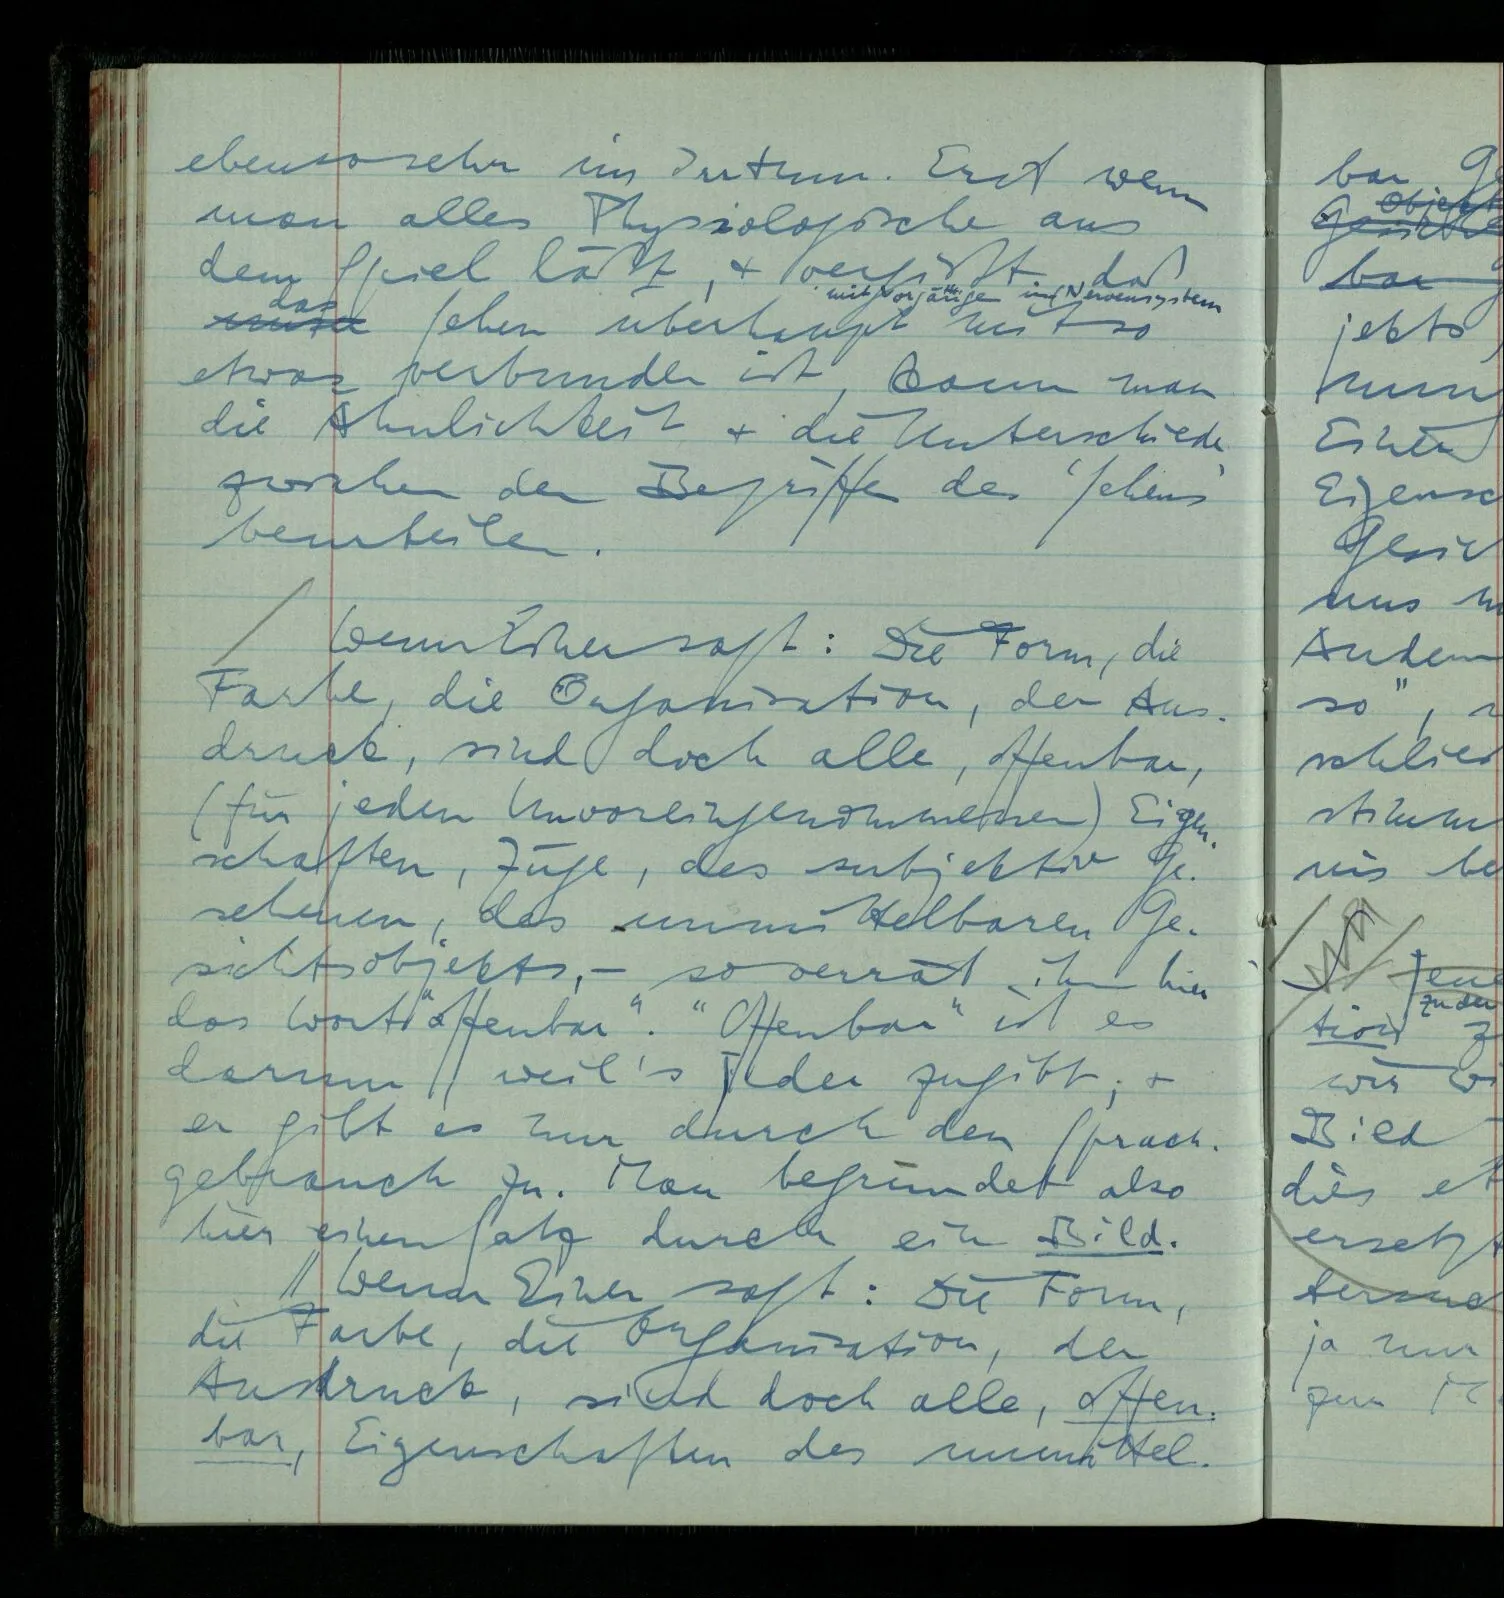 ebensosehr im Irrtum. Erst wenn
man alles Physiologische aus
dem Spiel läßt, + vergißt, daß
das mit Vorgängen im Nervensystem
Sehen überhaupt mit so
etwas verbunden ist, kann man
die Ähnlichkeit + die Unterschiede
zwischen den Begriffen des 'Sehens'
beurteilen.
/ Wenn Einer sagt: Die Form, die
Farbe, die Organisation, der Aus-
druck, sind doch alle, offenbar,
(für jeden Unvoreingenommenen) Eigen-
schaften, Züge, des subjektiv Ge-
sehenen, des unmittelbaren Ge-
sichtsobjekts, – so verrät ihn hier
das Wort "offenbar". "Offenbar" ist es
darum weil's Jeder zugibt; +
er gibt es nur durch den Sprach-
gebrauch zu. Man begründet also
hier einen Satz durch ein Bild.
// Wenn Einer sagt: Die Form,
die Farbe, die Organisation, der
Ausdruck, sind doch alle, offen-
bar, Eigenschaften des unmittel-
bar Ge
Objekt
bar
jekts,
nung
Einen
Eigensc
Gesic
uns
Andern
so",
schlies
stimm
nis be
Jene
zu der
tion z
wir wi
Bild
dies et
ersetzt
ja nur
zum M